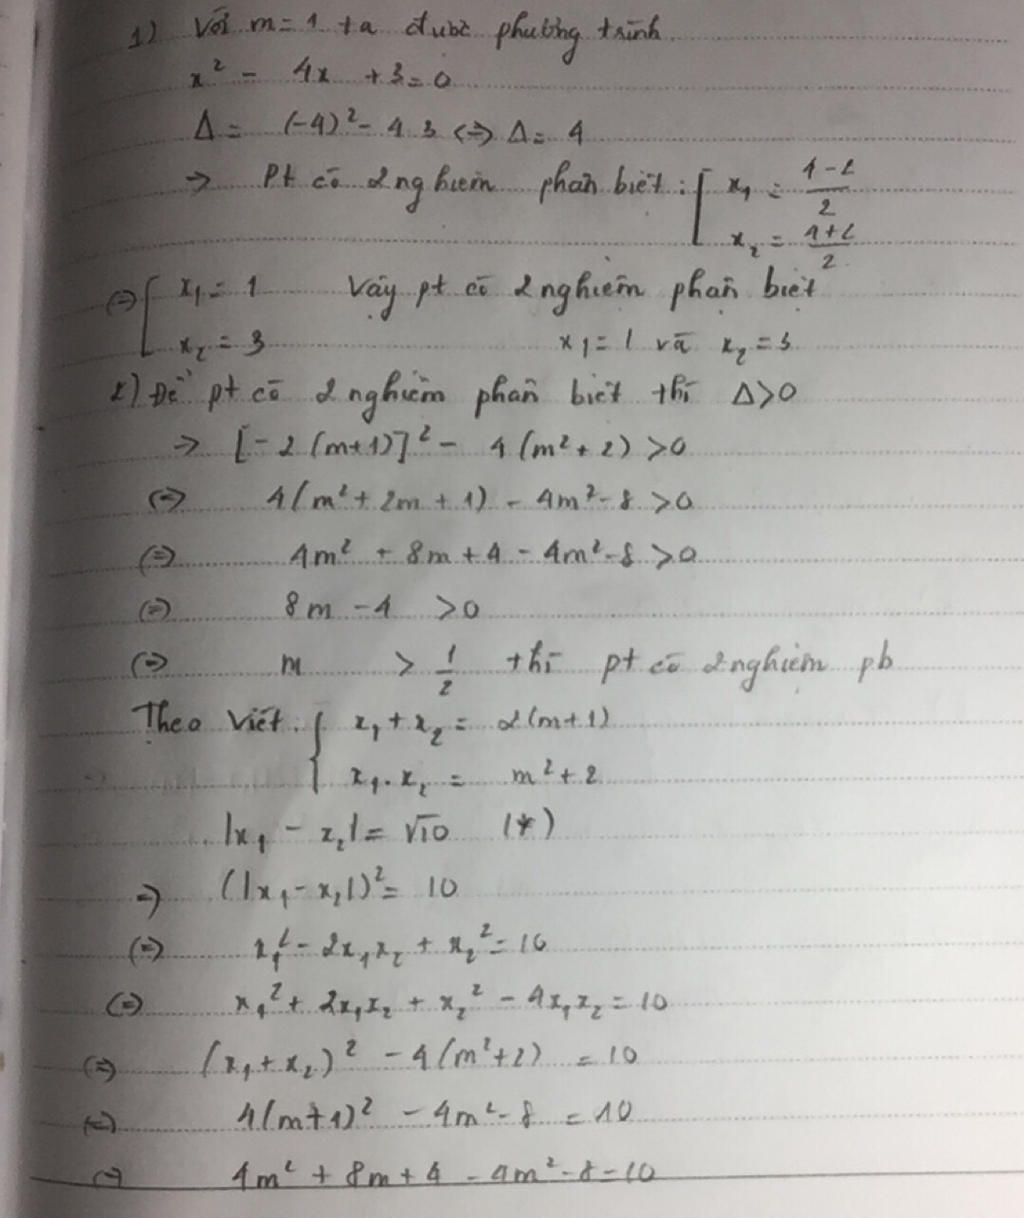 1) Với m = 1 ta được phương trình
x² - 4x + 3 = 0
Δ = (-4)² - 4.3 <=> Δ = 4
=> Pt có 2 nghiệm phân biệt : [ x₁ = (4-2)/2
x₂ = (4+2)/2
<=> [ x₁ = 1 Vậy pt có 2 nghiệm phân biệt
x₂ = 3 x₁ = 1 và x₂ = 3
2) Để pt có 2 nghiệm phân biệt thì Δ > 0
=> [-2(m+1)]² - 4(m² + 2) > 0
<=> 4(m² + 2m + 1) - 4m² - 8 > 0
<=> 4m² + 8m + 4 - 4m² - 8 > 0
<=> 8m - 4 > 0
<=> m > 1/2 thì pt có 2 nghiệm pb
Theo Viét : { x₁ + x₂ = 2(m+1)
x₁.x₂ = m² + 2
|x₁ - x₂| = √10 (*)
=> (|x₁ - x₂|)² = 10
<=> x₁² - 2x₁x₂ + x₂² = 10
<=> x₁² + 2x₁x₂ + x₂² - 4x₁x₂ = 10
<=> (x₁ + x₂)² - 4(m² + 2) = 10
<=> 4(m+1)² - 4m² - 8 = 10
<=> 4m² + 8m + 4 - 4m² - 8 = 10